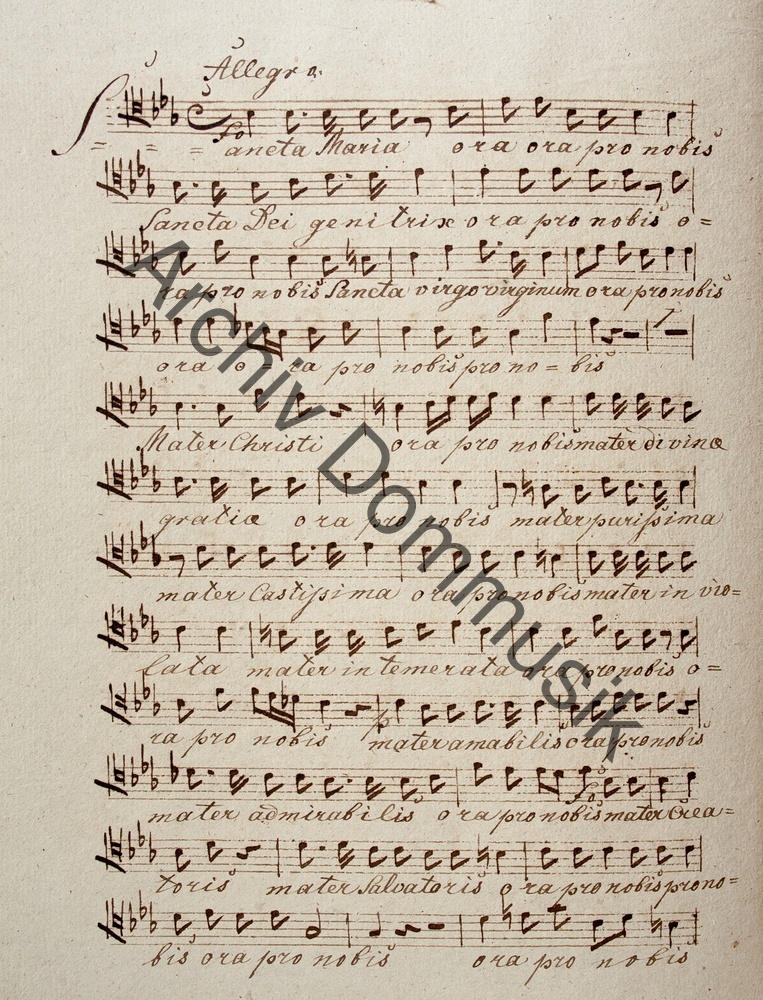 Allegro.
Fo
Sancta Maria ora ora pro nobis
Sancta Dei genitrix ora pro nobis o=
ra pro nobis Sancta virgo virginum ora pro nobis
ora o - ra pro nobis pro no = bis
Mater Christi ora pro nobis mater divinæ
gratiæ ora pro nobis mater purissima
mater Castissima ora pro nobis mater in vio=
lata mater intemerata ora pro nobis o=
ra pro nobis mater amabilis ora pro nobis
p
mater admirabilis ora pro nobis mater Crea=
Fo
toris mater Salvatoris ora pro nobis pro no=
bis ora pro nobis ora pro nobis
Archiv Dommusik